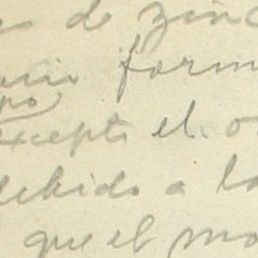 de zinc
form
excepto el
debido a la
que el mo